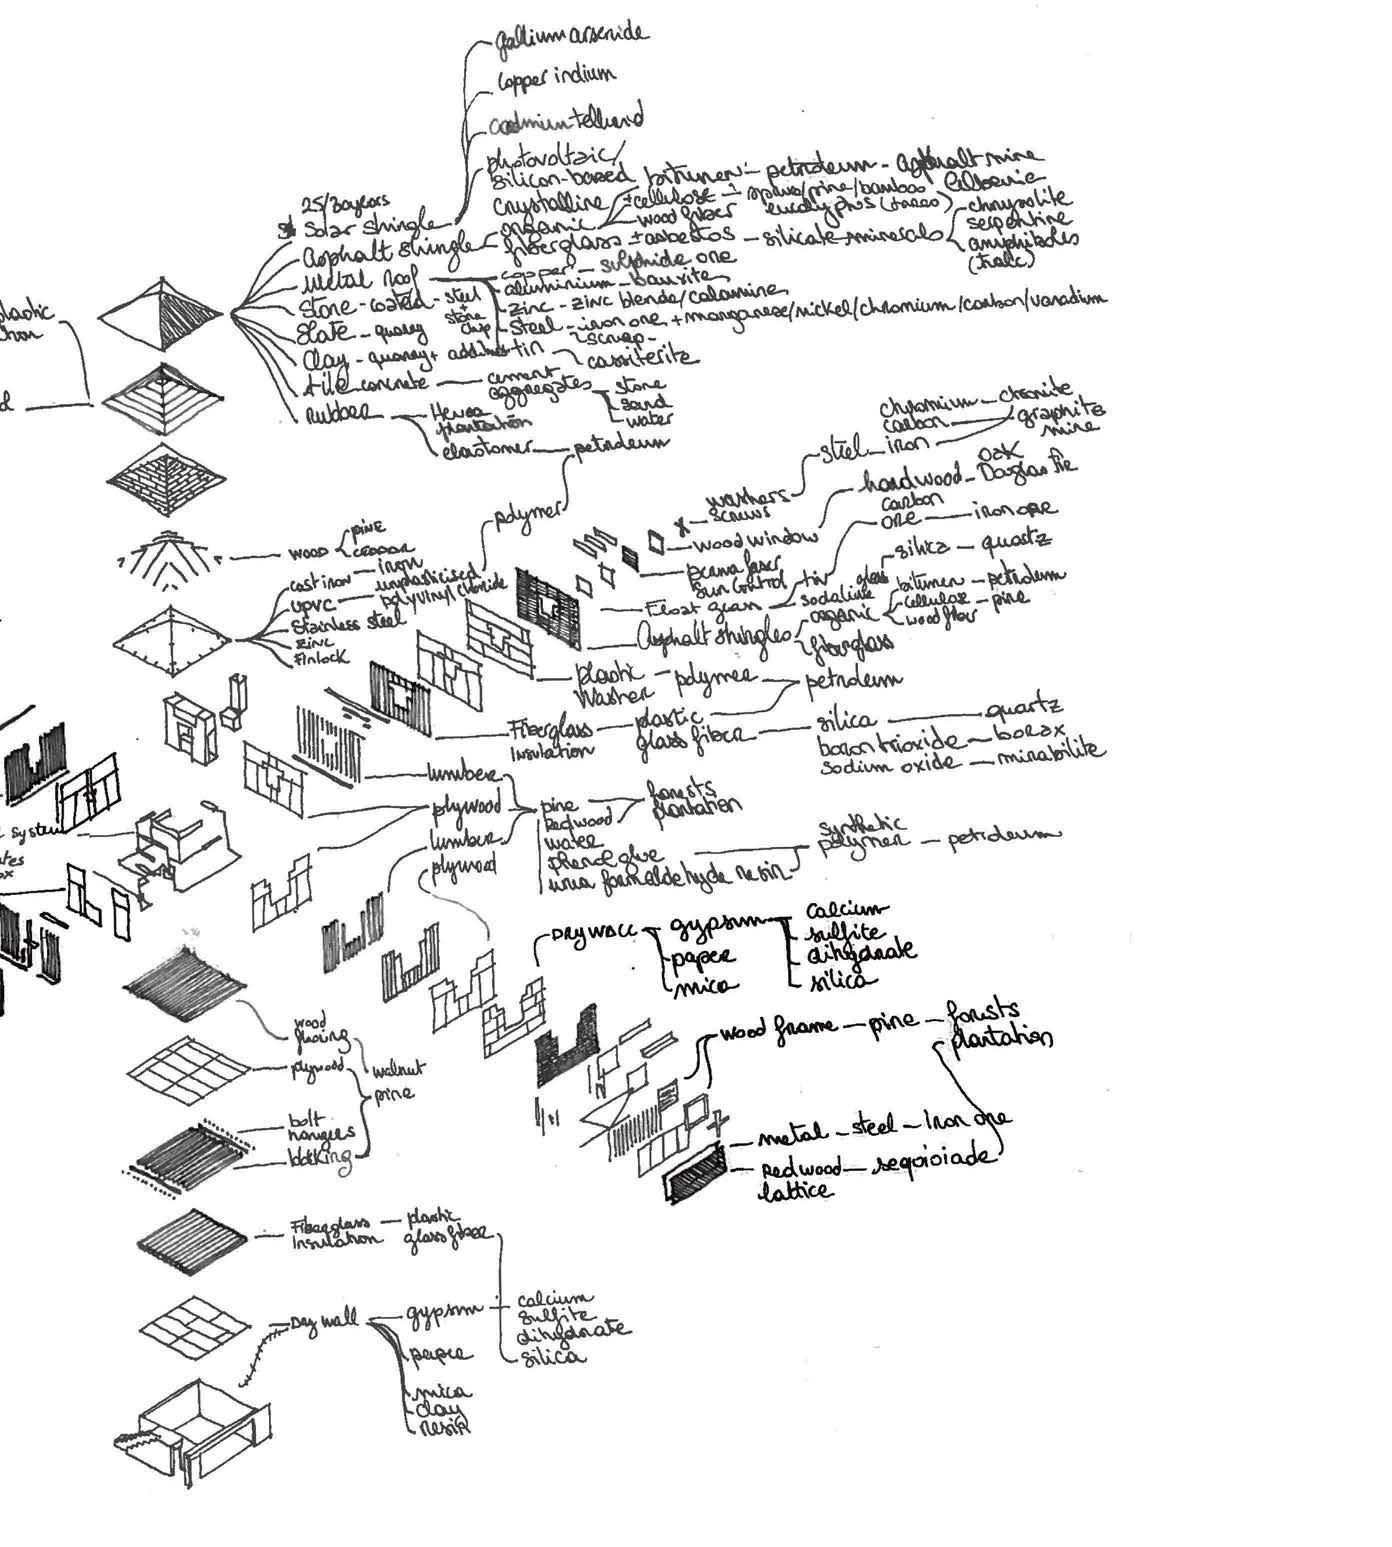 gallium arsenide
copper indium
photovoltaic/
silicon-based
crystalline
bitumen - petroleum - asphalt mine
± cellulose - /pine/bamboo
wood fiber
organic
fiberglass ± asbestos - silicate minerals
chrysolite
serpentine
amphiboles
25/30 years
Solar shingle
Asphalt shingle
Metal roof
copper - sulphide ore
aluminium - bauxite
zinc - zinc blende/calamine
steel - iron ore + manganese/nickel/chromium/carbon/vanadium
scrap -
tin
cassiterite
Stone-coated - steel
+
stone
chip
Slate - quarry
Clay - quarry +
tile concrete
cement
aggregates
stone
sand
water
rubber
Hevea
plantation
elastomer - petroleum
plastic
polymer
wood
pine
cast iron - iron
upvc - unplasticised
polyvinyl chloride
Stainless steel
zinc
Finlock
washers
screws
steel - iron
chromium
carbon
graphite
mine
wood window
hardwood - Oak
Douglas fir
carbon
ore - iron ore
sun control
Float
tin
glass
silica - quartz
Asphalt shingles
organic
fiberglass
bitumen - petroleum
cellulose - pine
wood fiber
plastic
washer
polymer
petroleum
Fiberglass
Insulation
plastic
glass fiber
silica
quartz
boron trioxide - borax
sodium oxide - mirabilite
lumber
plywood
lumber
plywood
pine
Redwood
water
phenol glue
urea formaldehyde resin
forests
plantation
synthetic
polymer - petroleum
system
DRYWALL
gypsum
paper
mica
calcium
sulfite
dihydrate
silica
wood frame - pine - forests
plantation
metal - steel - Iron ore
Redwood
lattice
wood
plywood
walnut
pine
bolt
hangers
Fiberglass
Insulation
plastic
glass fiber
Dry wall
gypsum
paper
mica
clay
resin
calcium
sulfite
dihydrate
silica